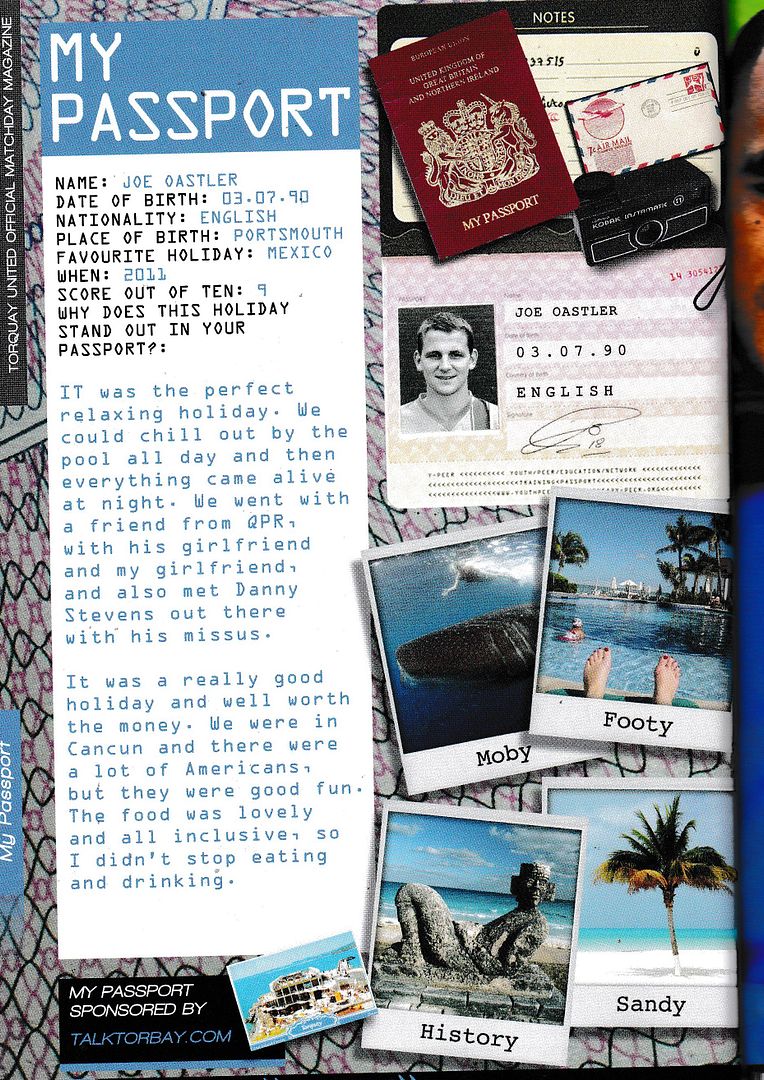 TORQUAY UNITED OFFICIAL MATCHDAY MAGAZINE
My Passport
MY
PASSPORT
NAME: JOE OASTLER
DATE OF BIRTH: 03.07.90
NATIONALITY: ENGLISH
PLACE OF BIRTH: PORTSMOUTH
FAVOURITE HOLIDAY: MEXICO
WHEN: 2011
SCORE OUT OF TEN: 9
WHY DOES THIS HOLIDAY
STAND OUT IN YOUR
PASSPORT?:
IT was the perfect
relaxing holiday. We
could chill out by the
pool all day and then
everything came alive
at night. We went with
a friend from QPR,
with his girlfriend
and my girlfriend,
and also met Danny
Stevens out there
with his missus.
It was a really good
holiday and well worth
the money. We were in
Cancun and there were
a lot of Americans,
but they were good fun.
The food was lovely
and all inclusive, so
I didn't stop eating
and drinking.
MY PASSPORT
SPONSORED BY
TALKTORBAY.COM
NOTES
EUROPEAN UNION
UNITED KINGDOM OF
GREAT BRITAIN
AND NORTHERN IRELAND
MY PASSPORT
7c AIR MAIL
KODAK INSTAMATIC 11
14 305412
PASSPORT
Name
JOE OASTLER
Date of birth
03.07.90
Country of birth
ENGLISH
Signature
18
Y-PEER <<<<<<<<<< YOUTH/PEER/EDUCATION/NETWORK <<<<<<<<<<<<<
Moby
Footy
History
Sandy